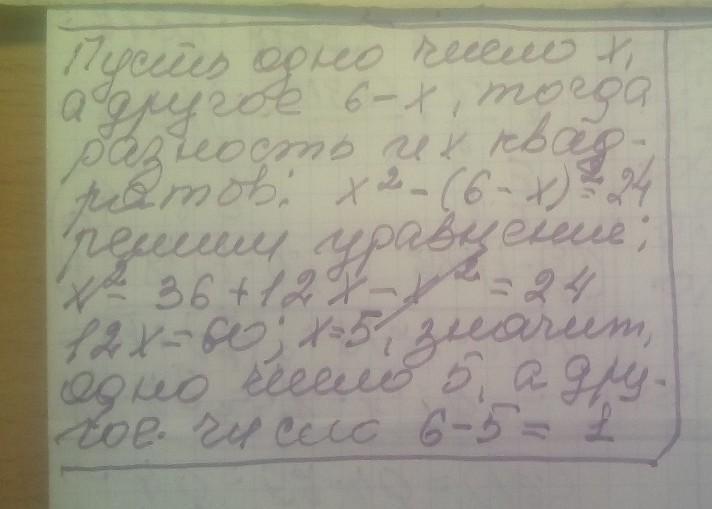 Пусть одно число x,
а другое 6-x, тогда
разность их квад-
ратов: x²-(6-x)²=24
решим уравнение;
x²- 36+12x-x²=24
12x=60; x=5, значит,
одно число 5, а дру-
гое число 6-5= 1